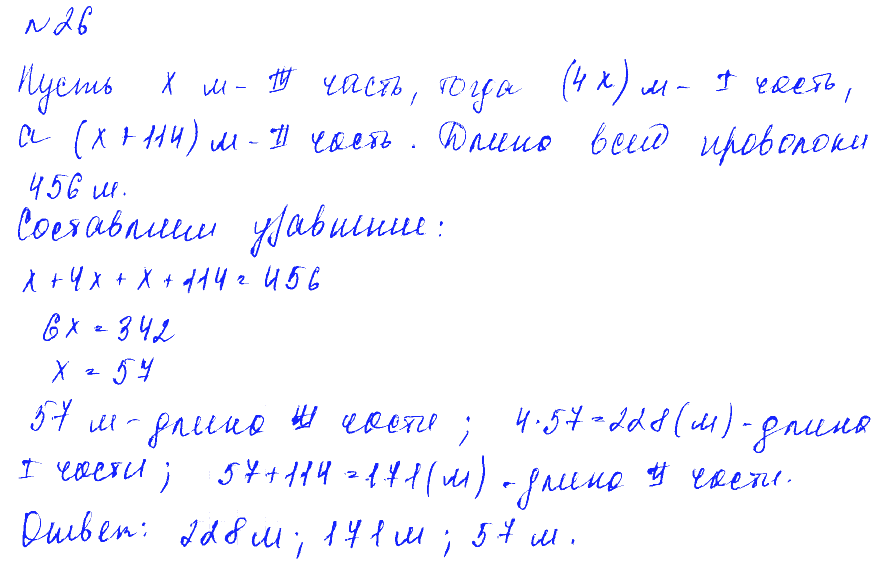 №26
Пусть x м - III часть, тогда (4x) м - I часть,
а (x+114) м - II часть. Длина всей проволоки
456 м.
Составляем уравнение:
x + 4x + x + 114 = 456
6x = 342
x = 57
57 м - длина III части; 4·57=228(м) - длина
I части; 57+114=171(м) - длина II части.
Ответ: 228 м; 171 м; 57 м.